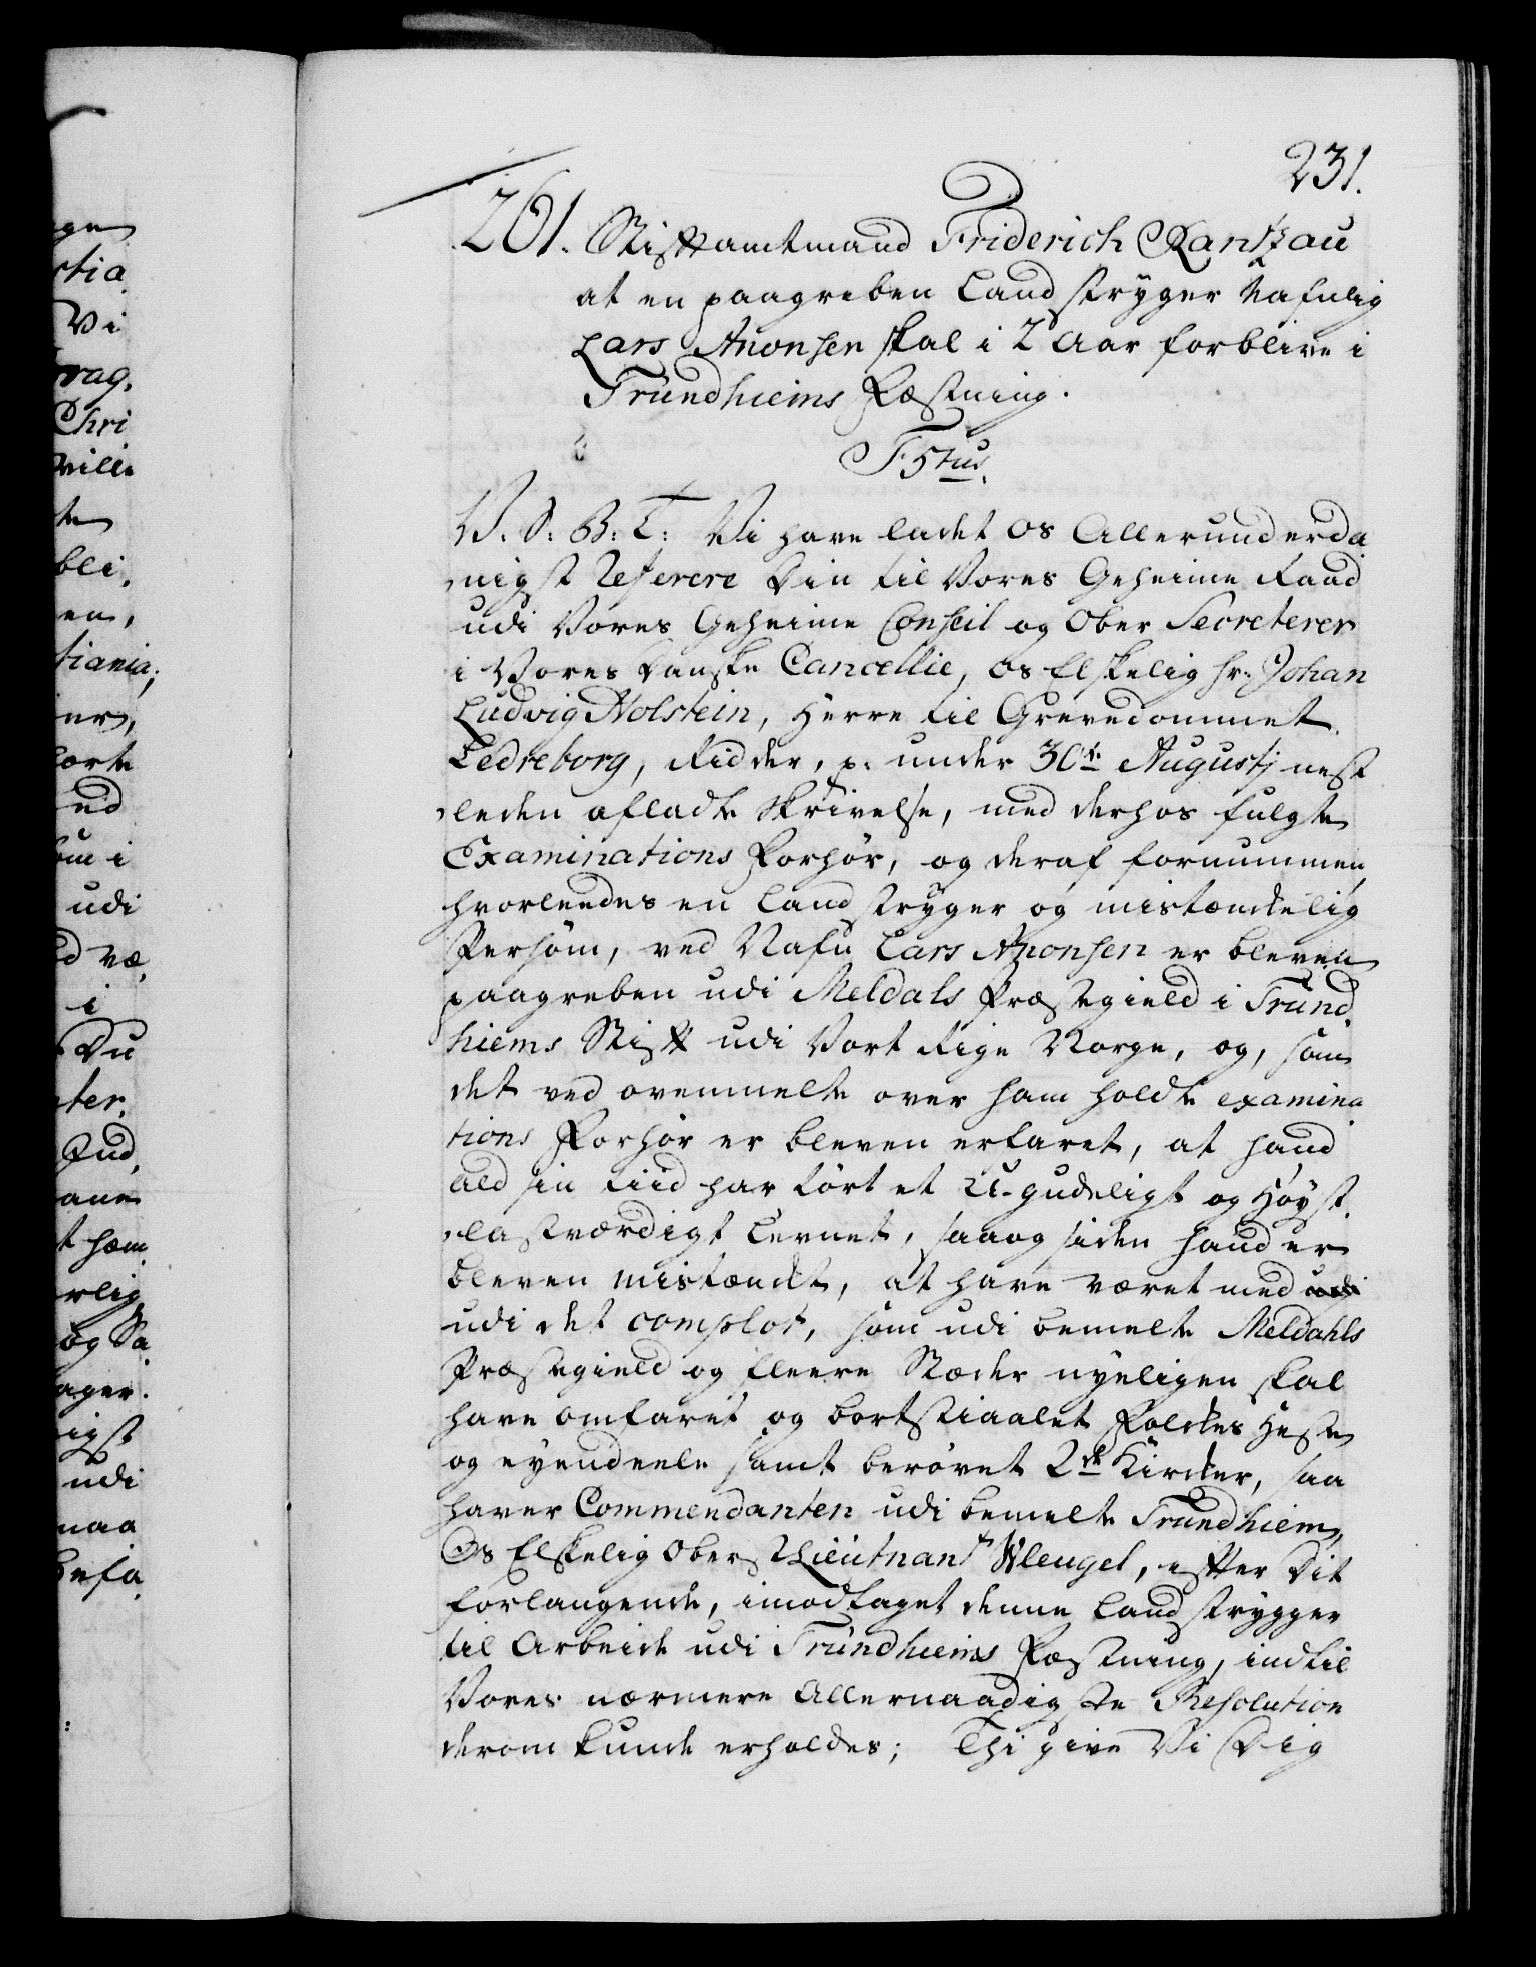 231.
261. Stiftamtmand Friderich Rantzau
at en paagreben Land stryger Nafnlig
Lars Anonsen skal i 2 Aar forblive i
Trundhiems Fæstning.
F5tus.
V. S: B: T: Vi have ladet os Allerunderda
nigst Referere Din til Vores Geheime Raad
udi Vores Geheime Conseil og Ober Secreterer
i Vores Danske Cancellie, os Elskelig hr: Johan
Ludvig Holstein, Herre til Grevedommet
Ledreborg, Ridder, p. under 30te Augustj nest
leden afladte Skrivelse, med derhos fulgte
Examinations Forhør, og deraf fornummen,
hvorleedes en Land stryger og mistænckelig
Persohn, ved Nafn Lars Anonsen er bleven
paagreben udi Meldals Præstegield i Trund
hiems Stift udi Vort Rige Norge, og, som
det ved ovenmelte over ham holdte examina
tions Forhør er bleven erfaret, at hand
ald sin Tiid har ført et U-gudeligt og Høyst
lastværdigt Levnet, saa og siden hand er
bleven mistænckt, at have været med udi
udi det complot, som udi bemelte Meldahls
Præstegield og fleere Stæder nyeligen skal
have omfaret og bortstiaalet Folckes Heste
og eyendeele samt berøvet 2de Kircker, saa
haver Commendanten udi bemelte Trundhiem,
Os Elskelig Oberst Lieutnant Wleugel, efter Dit
forlangende, imodtaget denne Land strygger
til Arbeide udi Trundhiems Fæstning, indtil
Vores nærmere Allernaadigste Resolution
derom kunde erholdes; Thi give Vi Dig
gen
stia
Vi
rag,
Chri
ville
te
bli,
en,
tiania,
er,
orte
ed
om i
udi
d væ,
i
Du
ter,
Ind,
ane
t ham
rlig
og Sa
ager.
igst
udi
maa
befa,